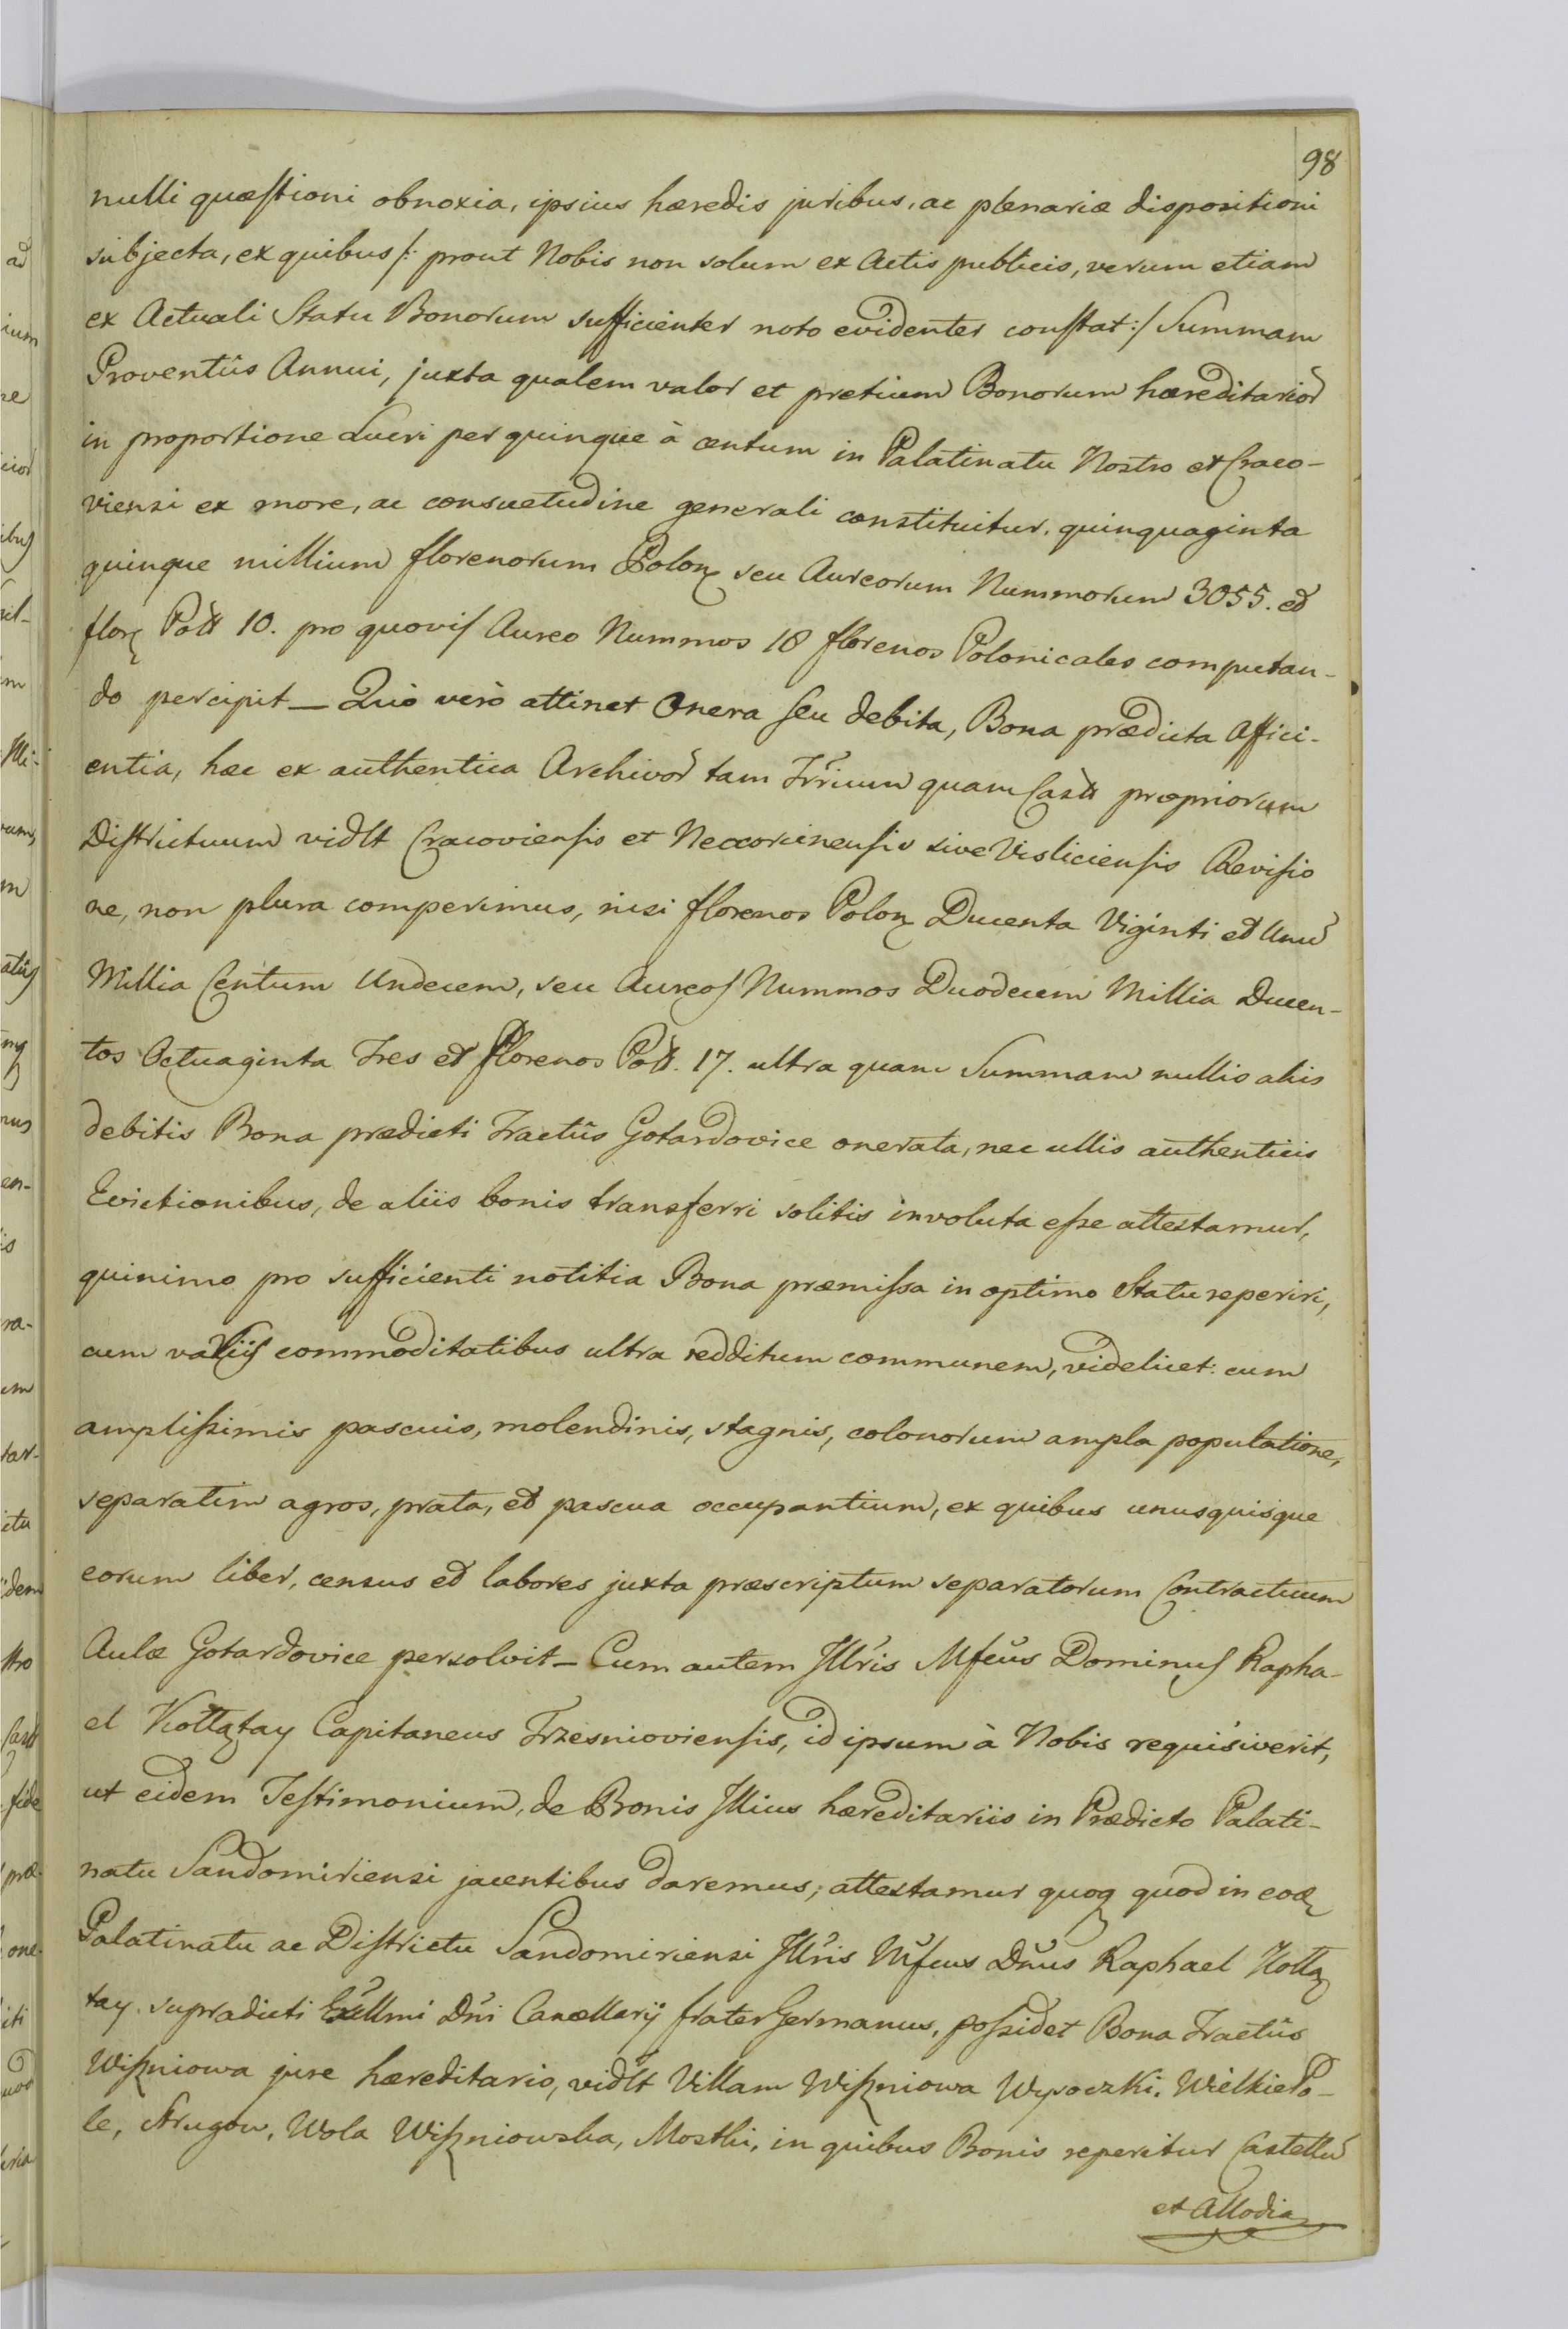 98
nulli quæstioni obnoxia, ipsius hæredis juribus, ac plenariæ dispositioni
subjecta, ex quibus /: prout Nobis non solum ex Actis publicis, verum etiam
ex Actuali Statu Bonorum sufficienter noto evidenter constat :/ Summam
Proventûs Annui, juxta qualem valor et pretium Bonorum hæreditarior̃
in proportione Lucri per quinque à centum in Palatinatu Nostro et Craco-
viensi ex more, ac consuetudine generali constituitur, quinquaginta
quinque millium florenorum Polon seu Aureorum Nummorum 3055. et
flor Poll 10. pro quovis Aureo Nummos 18 florenos Polonicales computan-
do percipit _ Quò verò attinet Onera seu debita, Bona prædicta Affici-
entia, hæc ex authentica Archivor̃ tam Trrium quam Castr propriorum
Districtuum vidlt Cracoviensis et Neocorcinensis sive Visliciensis Revisio
ne, non plura comperimus, nisi florenos Polon Ducenta Viginti et Unũ
Millia Centum Undecem, seu Aureos Nummos Duodecem Millia Ducen-
tos Octuaginta Tres et Florenos Poll. 17. ultra quam Summam nullis aliis
debitis Bona prædicti Tractûs Gotardovice onerata, nec ullis authenticis
Evictionibus, de aliis bonis transferri solitis involuta esse attestamur,
quinimo pro sufficienti notitia Bona præmissa in optimo Statu reperiri,
cum variis commoditatibus ultra redditum communem, videlicet: cum
amplissimis pascuis, molendinis, stagnis, colonorum ampla populatione,
separatim agros, prata, et pascua occupantium, ex quibus unusquisque
eorum liber, census et labores juxta præscriptum separatorum Contractuum
Aulæ Gotardovice persolvit _ Cum autem Illris Mfcus Dominus Rapha-
el Kołłątay Capitaneus Trzesnioviensis, id ipsum à Nobis requisiverit,
ut eidem Testimonium, de Bonis Illius hæreditariis in Prædicto Palati-
natu Sandomiriensi jacentibus daremus; attestamur quoq quod in eod
Palatinatu ac Districtu Sandomiriensi Illris Mfcus Dnus Raphael Kołłą
tay supradicti Exllmi Dni Cancellarij frater Germanus, possidet Bona Tractûs
Wiszniowa jure hæreditario, vidlt Villam Wiszniowa Wysoczki, Wielkie Po-
le, Strugow, Wola Wiszniowska, Mostki, in quibus Bonis reperitur Castellũ
et Allodia